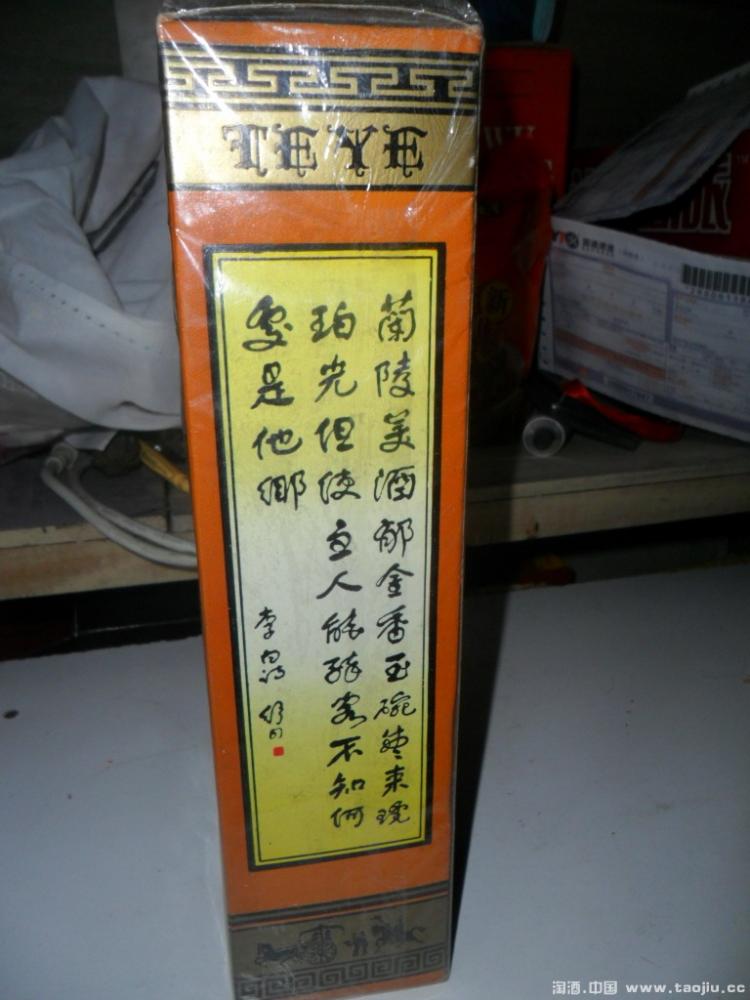 TEYE
蘭陵美酒郁金香玉碗盛来琥
珀光但使主人能醉客不知何
处是他乡
李白诗
新
淘酒.中国 www.taojiu.cc